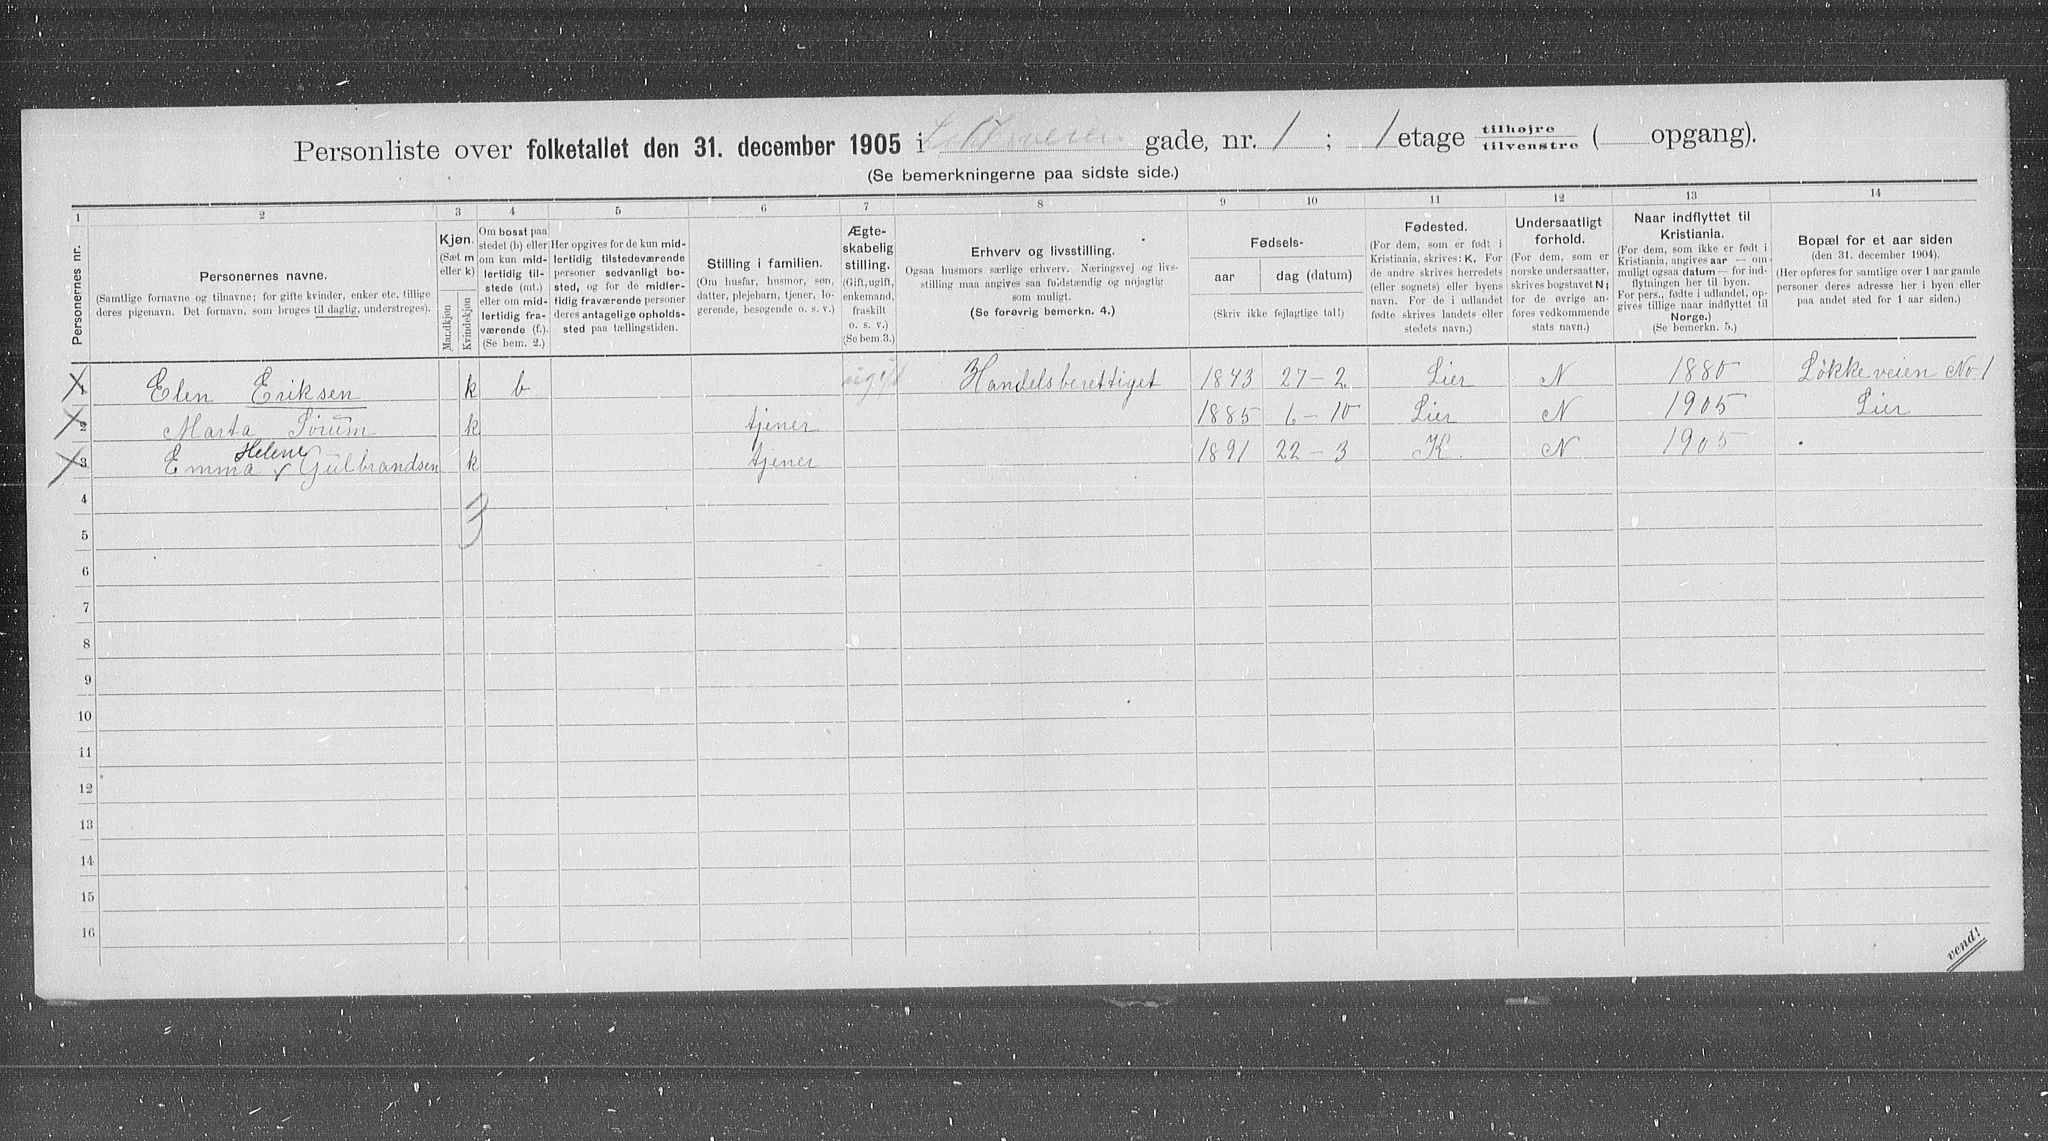 Personliste over folketallet den 31. december 1905 i Løkkeveien gade, nr. 1 ; 1 etage tilhøjre tilvenstre ( opgang).
(Se bemerkningerne paa sidste side.)
1 2 3 4 5 6 7 8 9 10 11 12 13 14
Personernes nr.
Personernes navne.
(Samtlige fornavne og tilnavne; for gifte kvinder, enker etc. tillige
deres pigenavn. Det fornavn, som bruges til daglig, understreges).
Kjøn.
(Sæt m
eller k)
Mandkjøn
Kvindekjøn
Om bosat paa
stedet (b) eller
om kun mid-
lertidig til-
stede (mt.)
eller om mid-
lertidig fra-
værende (f.).
(Se bem. 2.)
Her opgives for de kun mid-
lertidig tilstedeværende
personer sedvanligt bo-
sted, og for de midler-
tidig fraværende personer
deres antagelige opholds-
sted paa tællingstiden.
Stilling i familien.
(Om husfar, husmor, søn,
datter, plejebarn, tjener, lo-
gerende, besøgende o. s. v.)
Ægte-
skabelig
stilling.
(Gift, ugift,
enkemand,
fraskilt
o. s. v.)
(Se bem. 3.)
Erhverv og livsstilling.
Ogsaa husmors særlige erhverv. Næringsvej og livs-
stilling maa angives saa fuldstændig og nøjagtig
som muligt.
(Se forøvrig bemerkn. 4.)
Fødsels-
aar
dag (datum)
(Skriv ikke fejlagtige tal!)
Fødested.
(For dem, som er født i
Kristiania, skrives: K. For
de andre skrives herredets
(eller sognets) eller byens
navn. For de i udlandet
fødte skrives landets eller
stedets navn.)
Undersaatligt
forhold.
(For dem, som er
norske undersaatter,
skrives bogstavet N;
for de øvrige an-
føres vedkommende
stats navn.)
Naar indflyttet til
Kristiania.
(For dem, som ikke er født i
Kristiania, angives aar — om
muligt ogsaa datum — for ind-
flytningen her til byen.
For pers., fødte i udlandet, op-
gives tillige naar indflyttet til
Norge.)
(Se bemerkn. 5.)
Bopæl for et aar siden
(den 31. december 1904).
(Her opføres for samtlige over 1 aar gamle
personer deres adresse her i byen eller
paa andet sted for 1 aar siden.)
1 Elen Eriksen k b ugift Handelsberettiget 1843 27 - 2 Lier N 1880 Løkkeveien No 1
2 Marta Sørum k tjener 1885 6 - 10 Lier N 1905 Lier
3 Emma Helene Gulbrandsen k tjener 1891 22 - 3 K. N 1905
4
3
5
6
7
8
9
10
11
12
13
14
15
16
vend!